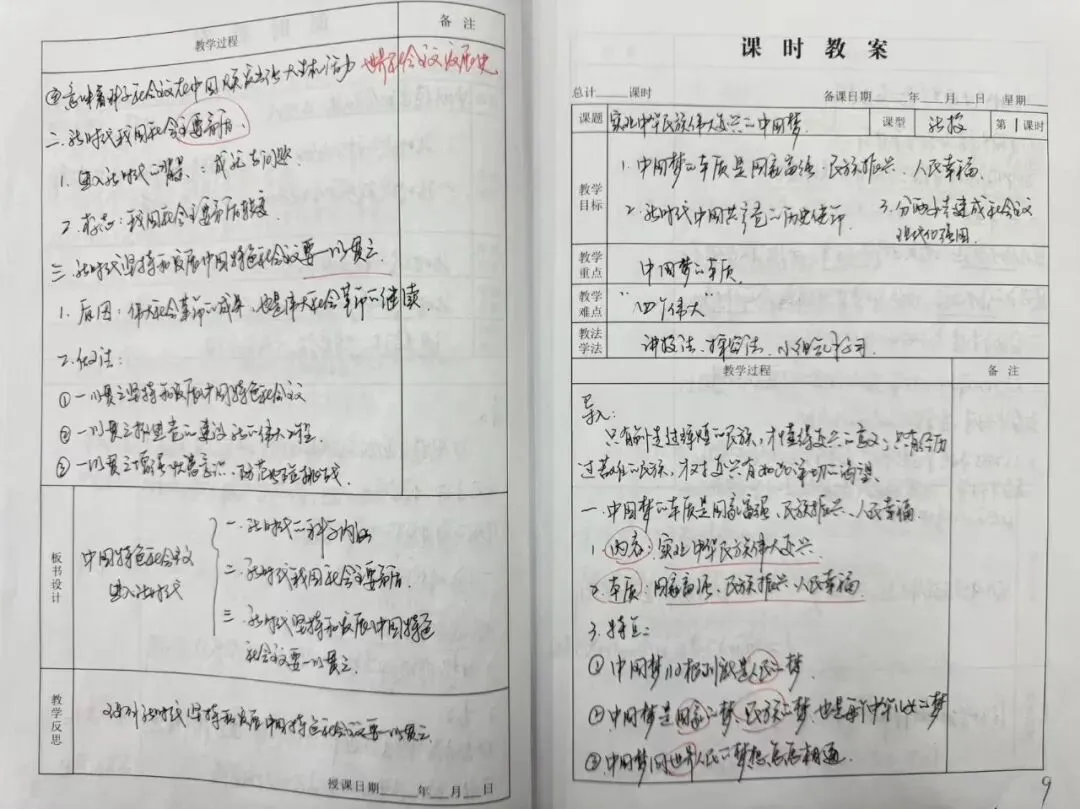 教学过程
备 注
世界社会主义发展史
二、新时代我国社会主要矛盾.
1. 进入新时代的背景:成就与问题
2. 标志:我国社会主要矛盾转变
三、新时代坚持和发展中国特色社会主义要一以贯之.
1. 原因:伟大社会革命的成果,也是伟大社会革命的继续.
2. 做法:
①一以贯之坚持和发展中国特色社会主义
②一以贯之推进党的建设新的伟大工程.
③一以贯之增强忧患意识、防范风险挑战
板书设计
中国特色社会主义
进入新时代
一、新时代的科学内涵
二、新时代我国社会主要矛盾.
三、新时代坚持和发展中国特色
社会主义要一以贯之.
教学反思
新时代坚持和发展中国特色社会主义要一以贯之
授课日期 年 月 日
课 时 教 案
总计 课时
备课日期 年 月 日 星期
课题
实现中华民族伟大复兴的中国梦
课型
新授
第1课时
教学目标
1. 中国梦的本质是国家富强、民族振兴、人民幸福.
2. 新时代中国共产党的历史使命
3. 分两步走建成社会主义
现代化强国.
教学重点
中国梦的本质.
教学难点
"四个伟大"
教法学法
讲授法、探究法、小组
教学过程
备 注
导入:
只有创造过辉煌的民族,才懂得复兴的意义;只有经历
过苦难的民族,才对复兴有如此深切的渴望.
一. 中国梦的本质是国家富强、民族振兴、人民幸福.
1. 内容:实现中华民族伟大复兴.
2. 本质:国家富强、民族振兴、人民幸福.
3. 特点:
①中国梦归根到底是人民的梦.
②中国梦是国家的梦、民族的梦,也是每个中华儿女的梦
③中国梦同世界人民的梦想息息相通.
9